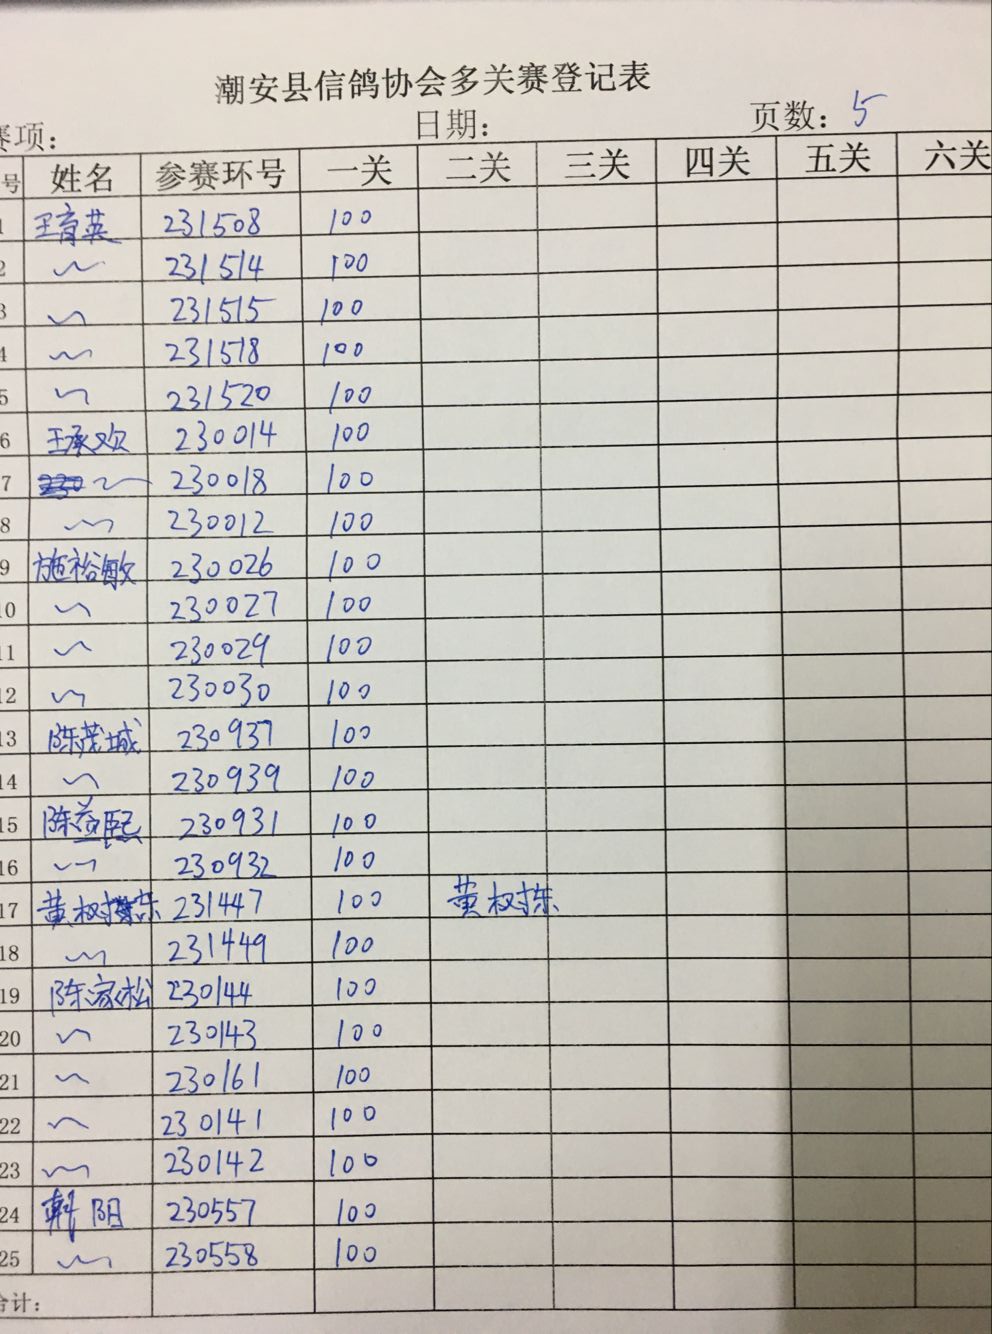 潮安县信鸽协会多关赛登记表
赛项: 日期: 页数: 5
号 姓名 参赛环号 一关 二关 三关 四关 五关 六关
1 王育英 231508 100
2 〜 231514 100
3 〜 231515 100
4 〜 231518 100
5 〜 231520 100
6 王承欢 230014 100
7 〜 230018 100
8 〜 230012 100
9 施裕敏 230026 100
10 〜 230027 100
11 〜 230029 100
12 〜 230030 100
13 陈茂城 230937 100
14 〜 230939 100
15 陈益熙 230931 100
16 〜 230932 100
17 黄树栋 231447 100 黄树栋
18 〜 231449 100
19 陈家松 230144 100
20 〜 230143 100
21 〜 230161 100
22 〜 230141 100
23 〜 230142 100
24 阳 230557 100
25 〜 230558 100
合计: